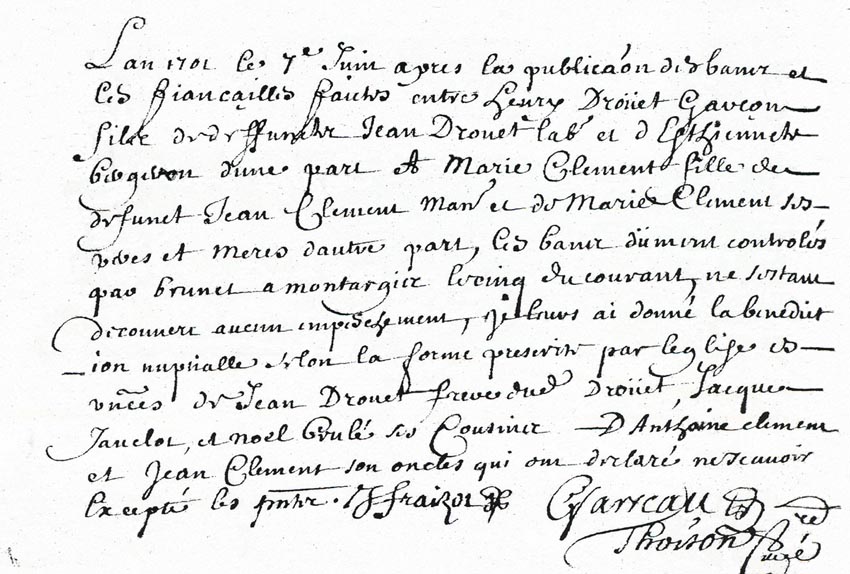 Lan 1701 le 7e Juin apres la publicaōn des bancz et
les fiancailles faictes entre henry Droüet Garcon
filz de deffunctz Jean Drouet lab^r et d Esthiennete
dune part Et Marie Clement fille de
defunct Jean Clement Man^r et de Marie Clement ses
et meres dautre part, les bancz dûment controlés
par brunet a montargis le cinq du courant, ne sestant
decouvert aucun empeschement, je leurs ai donné la benedict
ion nuptialle selon la forme prescrite par leglise es
de Jean Drouet frere dud Droüet, Jacques
Javelot, et noel brulé ses Cousins D Anthoine clement
et Jean Clement son oncles qui ont declaré ne scavoir
Excepté les pntz.
Garreau
Thoison Curé